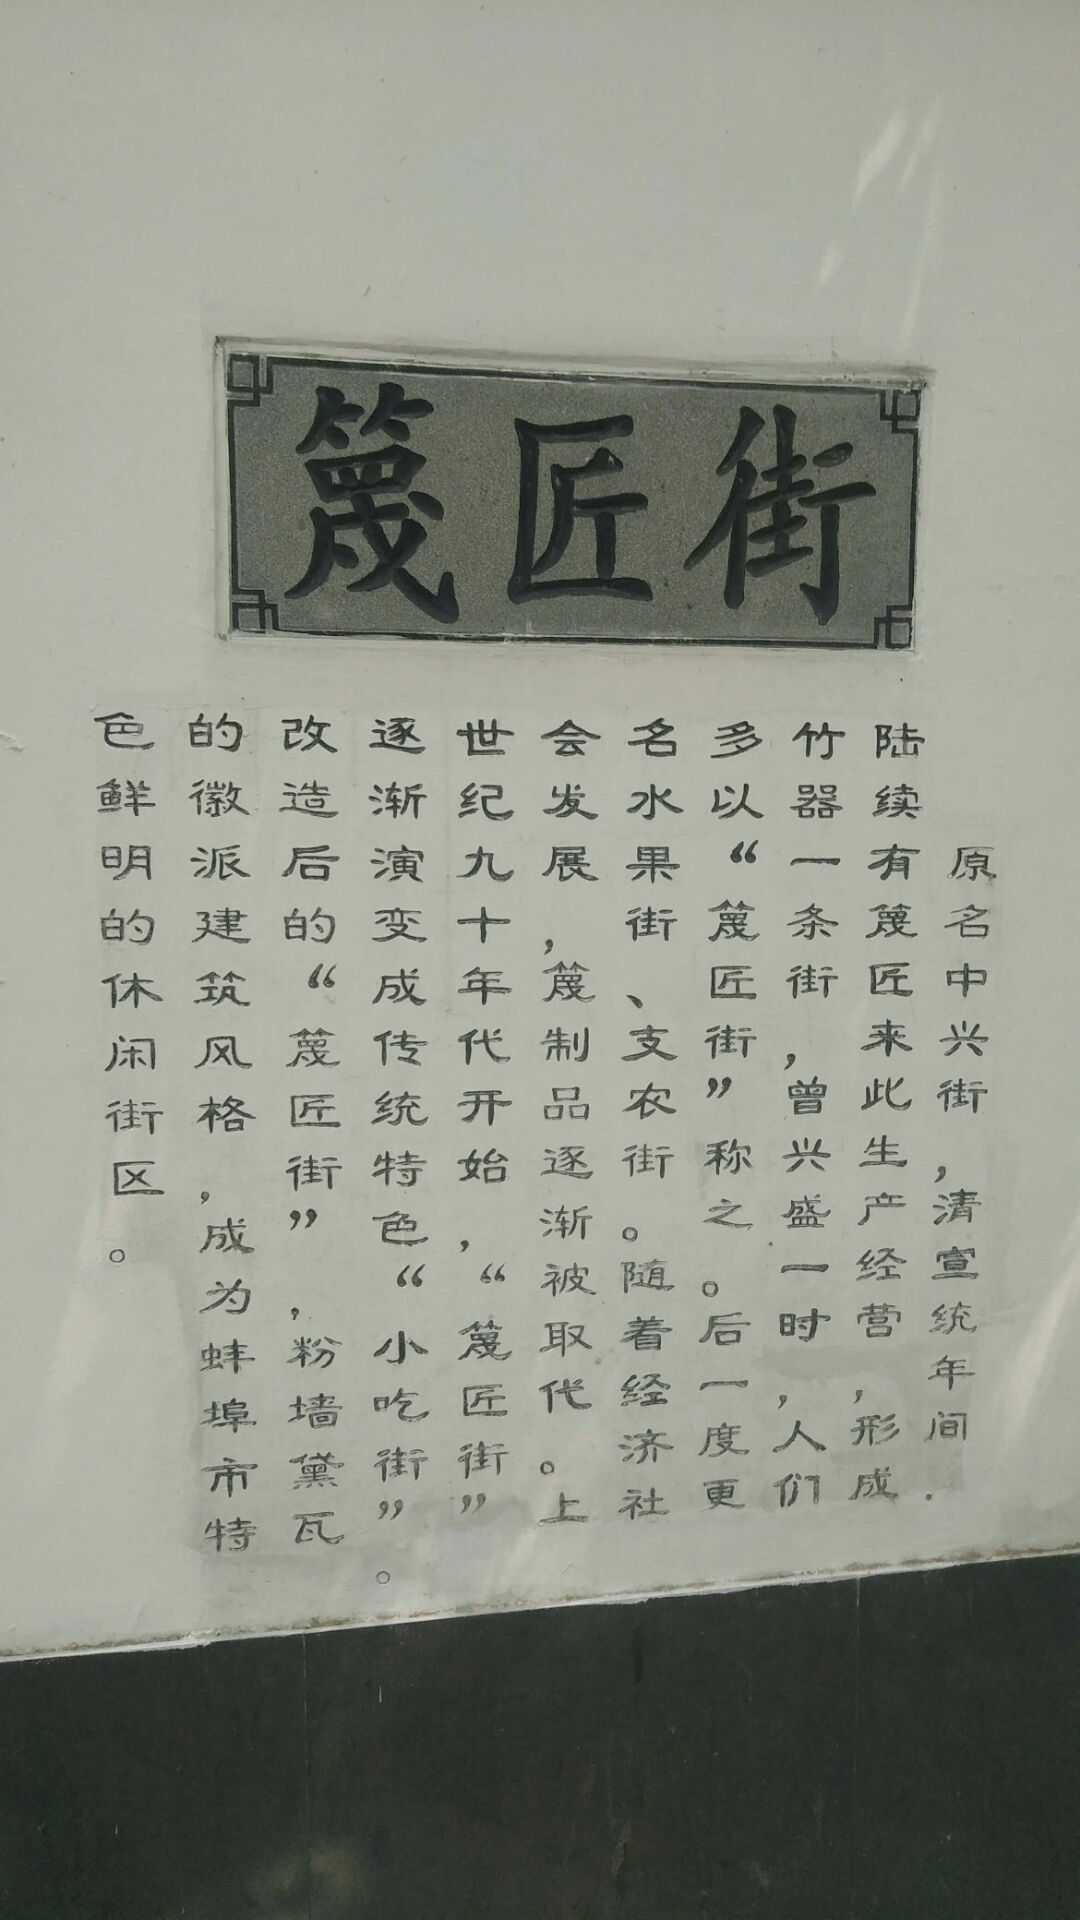 篾匠街
原名中兴街，清宣统年间.
陆续有篾匠来此生产经营，形成
竹器一条街，曾兴盛一时，人们
多以“篾匠街”称之。后一度更
名水果街、支农街。随着经济社
会发展，篾制品逐渐被取代。上
世纪九十年代开始，“篾匠街”
逐渐演变成传统特色“小吃街”。
改造后的“篾匠街”，粉墙黛瓦
的徽派建筑风格，成为蚌埠市特
色鲜明的休闲街区。